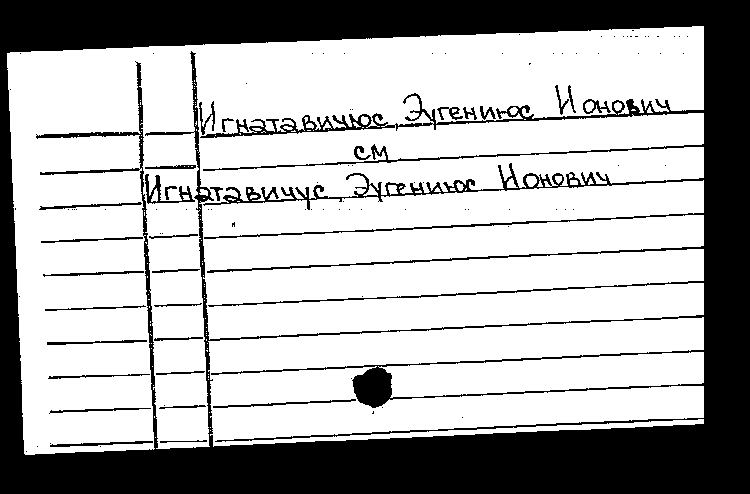 Игнатавичюс, Эугениюс Ионович
см
Игнатавичус, Эугениюс Ионович